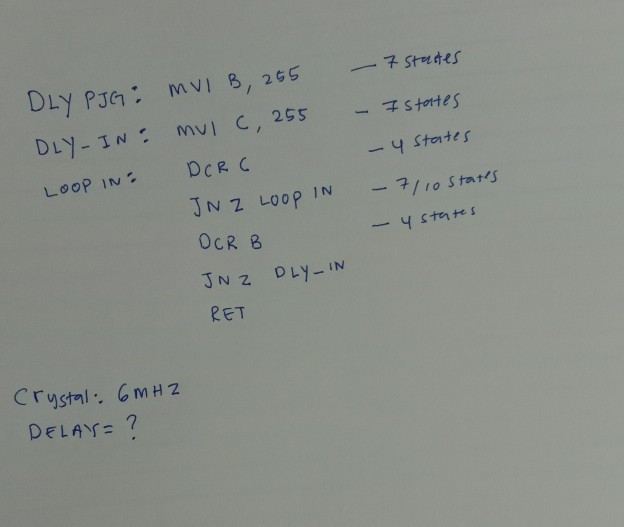 DLY PJG: MVI B, 255 — 7 states
DLY-IN: MVI C, 255 - 7 states
LOOP IN: DCR C - 4 states
JNZ LOOP IN - 7/10 states
DCR B - 4 states
JNZ DLY-IN
RET
Crystal: 6MHZ
DELAY= ?